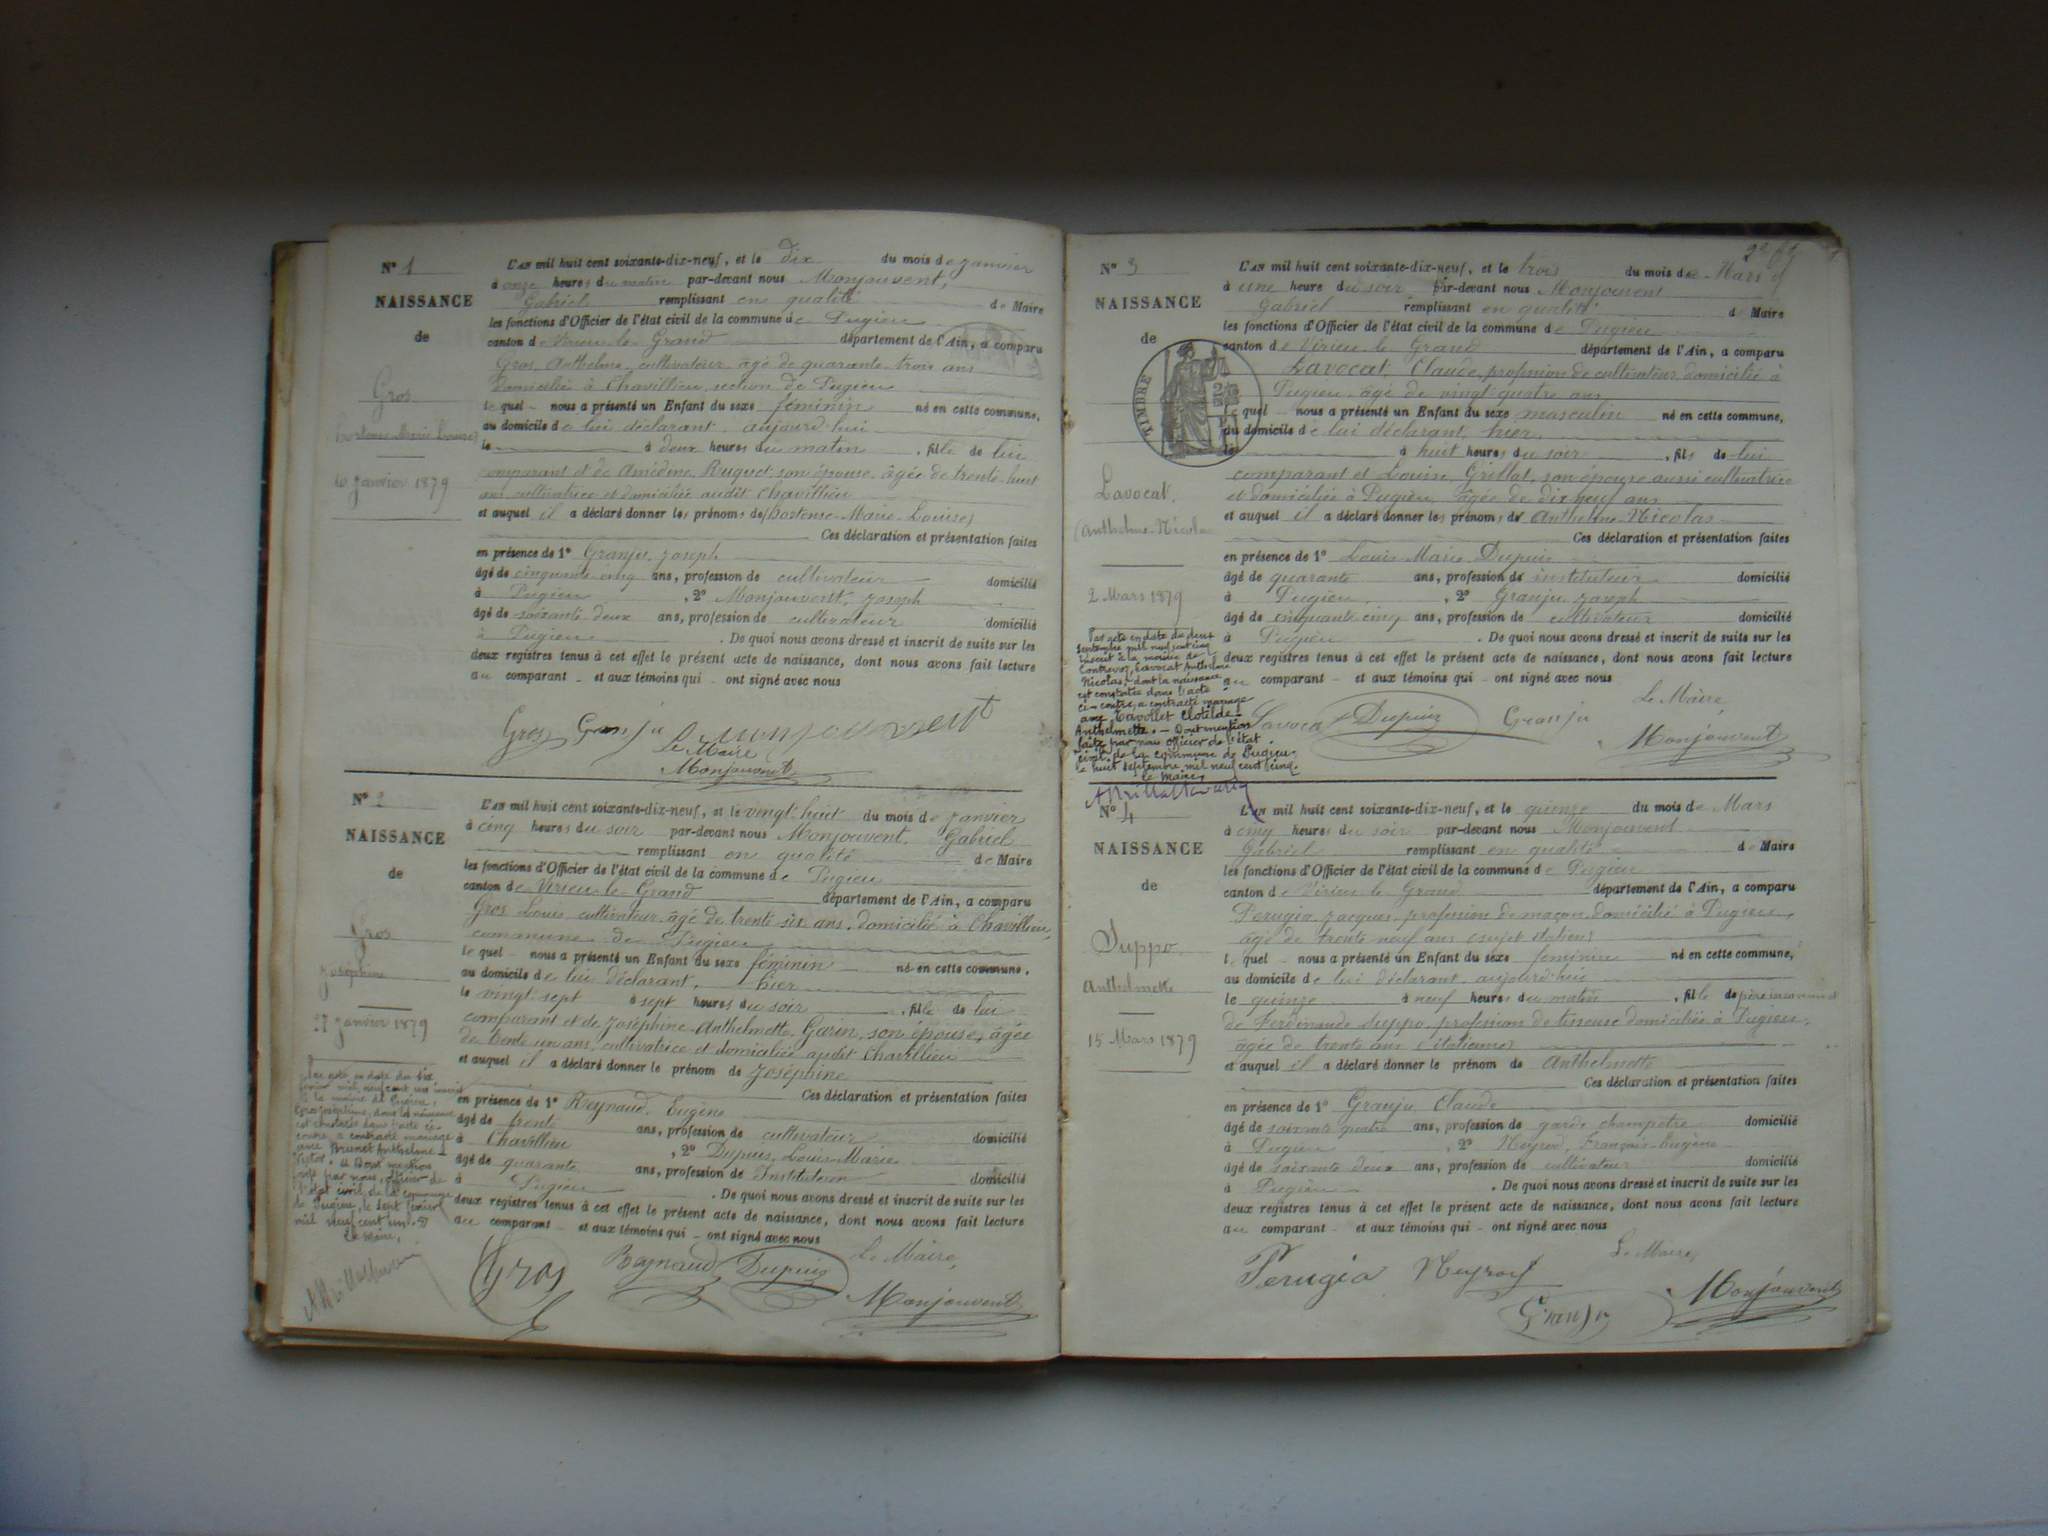 N° 1
NAISSANCE
de
Gros
Hortense Marie Louise
10 Janvier 1879
L'AN mil huit cent soixante-dix-neuf, et le dix du mois de janvier
à onze heures du matin par-devant nous Monjouvent,
Gabriel remplissant en qualité de Maire
les fonctions d'Officier de l'état civil de la commune de Pugieu
canton de Virieu-le-Grand département de l'Ain, a comparu
Gros Anthelme cultivateur âgé de quarante trois ans
domicilié à Chavillieu, section de Pugieu
lequel nous a présenté un Enfant du sexe féminin né en cette commune,
au domicile de lui déclarant, aujourd'hui
le à deux heures du matin, fille de lui
comparant et de Buquet son épouse, âgée de trente-huit
ans cultivatrice et domiciliée audit Chavillieu
et auquel il a déclaré donner les prénoms de (Hortense-Marie-Louise)
Ces déclaration et présentation faites
en présence de 1° Granju Joseph
âgé de cinquante-cinq ans, profession de cultivateur domicilié
à Pugieu, 2° Monjouvent, Joseph
âgé de soixante deux ans, profession de cultivateur domicilié
à Pugieu. De quoi nous avons dressé et inscrit de suite sur les
deux registres tenus à cet effet le présent acte de naissance, dont nous avons fait lecture
au comparant et aux témoins qui ont signé avec nous
Gros Granju Monjouvent
Le Maire
Monjouvent
N° 2
NAISSANCE
de
Gros
Joséphine
27 Janvier 1879
Par acte en date du six
février mil neuf cent un inscrit
à la mairie de Pugieu,
Gros Joséphine, dont la naissance
est constatée dans l'acte ci-
contre, a contracté mariage
avec Brunet Anthelme
Victor. Dont mention
faite par nous, officier de
l'état civil de la commune
de Pugieu, le sept février
mil neuf cent un.
Le Maire,
L'AN mil huit cent soixante-dix-neuf, et le vingt-huit du mois de janvier
à cinq heures du soir par-devant nous Monjouvent, Gabriel
remplissant en qualité de Maire
les fonctions d'Officier de l'état civil de la commune de Pugieu
canton de Virieu-le-Grand département de l'Ain, a comparu
Gros Louis, cultivateur, âgé de trente six ans, domicilié à Chavillieu,
commune de Pugieu
lequel nous a présenté un Enfant du sexe féminin né en cette commune,
au domicile de lui déclarant, hier
le vingt-sept à sept heures du soir, fille de lui
comparant et de Joséphine-Anthelmette Garin, son épouse, âgée
de trente un ans, cultivatrice et domiciliée audit Chavillieu
et auquel il a déclaré donner le prénom de Joséphine
Ces déclaration et présentation faites
en présence de 1° Reynaud, Eugène
âgé de trente ans, profession de cultivateur domicilié
à Chavillieu, 2° Dupuis, Louis-Marie
âgé de quarante ans, profession de Instituteur domicilié
à Pugieu. De quoi nous avons dressé et inscrit de suite sur les
deux registres tenus à cet effet le présent acte de naissance, dont nous avons fait lecture
au comparant et aux témoins qui ont signé avec nous
Le Maire,
Gros Reynaud Dupuis Monjouvent
N° 3
NAISSANCE
de
TIMBRE
Lavocat
(Anthelme-Nicolas
2 Mars 1879
Par acte en date du deux
septembre mil neuf cent cinq
inscrit à la mairie de
Contrevoz, Lavocat Anthelme
Nicolas, dont la naissance
est constatée dans l'acte
ci-contre, a contracté mariage
avec Tavollet Clotilde-
Anthelmette. — Dont mention
faite par nous officier de l'état
civil de la commune de Pugieu
le huit septembre mil neuf cent cinq.
Le Maire,
L'AN mil huit cent soixante-dix-neuf, et le trois du mois de Mars
à une heure du soir par-devant nous Monjouvent
Gabriel remplissant en qualité de Maire
les fonctions d'Officier de l'état civil de la commune de Pugieu
canton de Virieu-le-Grand département de l'Ain, a comparu
Lavocat, Claude, profession de cultivateur, domicilié à
Pugieu, âgé de vingt-quatre ans
lequel nous a présenté un Enfant du sexe masculin né en cette commune,
au domicile de lui déclarant, hier,
à huit heures du soir, fils de lui
comparant et Louise Grillat, son épouse aussi cultivatrice
et domiciliée à Pugieu, âgée de dix neuf ans
et auquel il a déclaré donner les prénoms de Anthelme-Nicolas
Ces déclaration et présentation faites
en présence de 1° Louis-Marie Dupuis
âgé de quarante ans, profession de instituteur domicilié
à Pugieu, 2° Granju Joseph
âgé de cinquante cinq ans, profession de cultivateur domicilié
à Pugieu. De quoi nous avons dressé et inscrit de suite sur les
deux registres tenus à cet effet le présent acte de naissance, dont nous avons fait lecture
au comparant et aux témoins qui ont signé avec nous
Le Maire,
Lavocat Dupuis Granju
Monjouvent
N° 4
NAISSANCE
de
Suppo
Anthelmette
15 Mars 1879
L'AN mil huit cent soixante-dix-neuf, et le quinze du mois de Mars
à cinq heures du soir par-devant nous Monjouvent
Gabriel remplissant en qualité de Maire
les fonctions d'Officier de l'état civil de la commune de Pugieu
canton de Virieu-le-Grand département de l'Ain, a comparu
Perugia Jacques, profession de maçon, domicilié à Pugieu,
âgé de trente neuf ans (sujet italien)
lequel nous a présenté un Enfant du sexe féminin né en cette commune,
au domicile de lui déclarant, aujourd'hui
le quinze à neuf heures du matin, fille de père inconnu et
de Ferdinande Suppo, profession de tisseuse domiciliée à Pugieu,
âgée de trente ans (italienne)
et auquel il a déclaré donner le prénom de Anthelmette
Ces déclaration et présentation faites
en présence de 1° Granju, Claude
âgé de soixante quatre ans, profession de garde champêtre domicilié
à Pugieu, 2° Neyrod, François-Eugène
âgé de soixante deux ans, profession de cultivateur domicilié
à Pugieu. De quoi nous avons dressé et inscrit de suite sur les
deux registres tenus à cet effet le présent acte de naissance, dont nous avons fait lecture
au comparant et aux témoins qui ont signé avec nous
Le Maire,
Perugia Neyrod
Granju Monjouvent